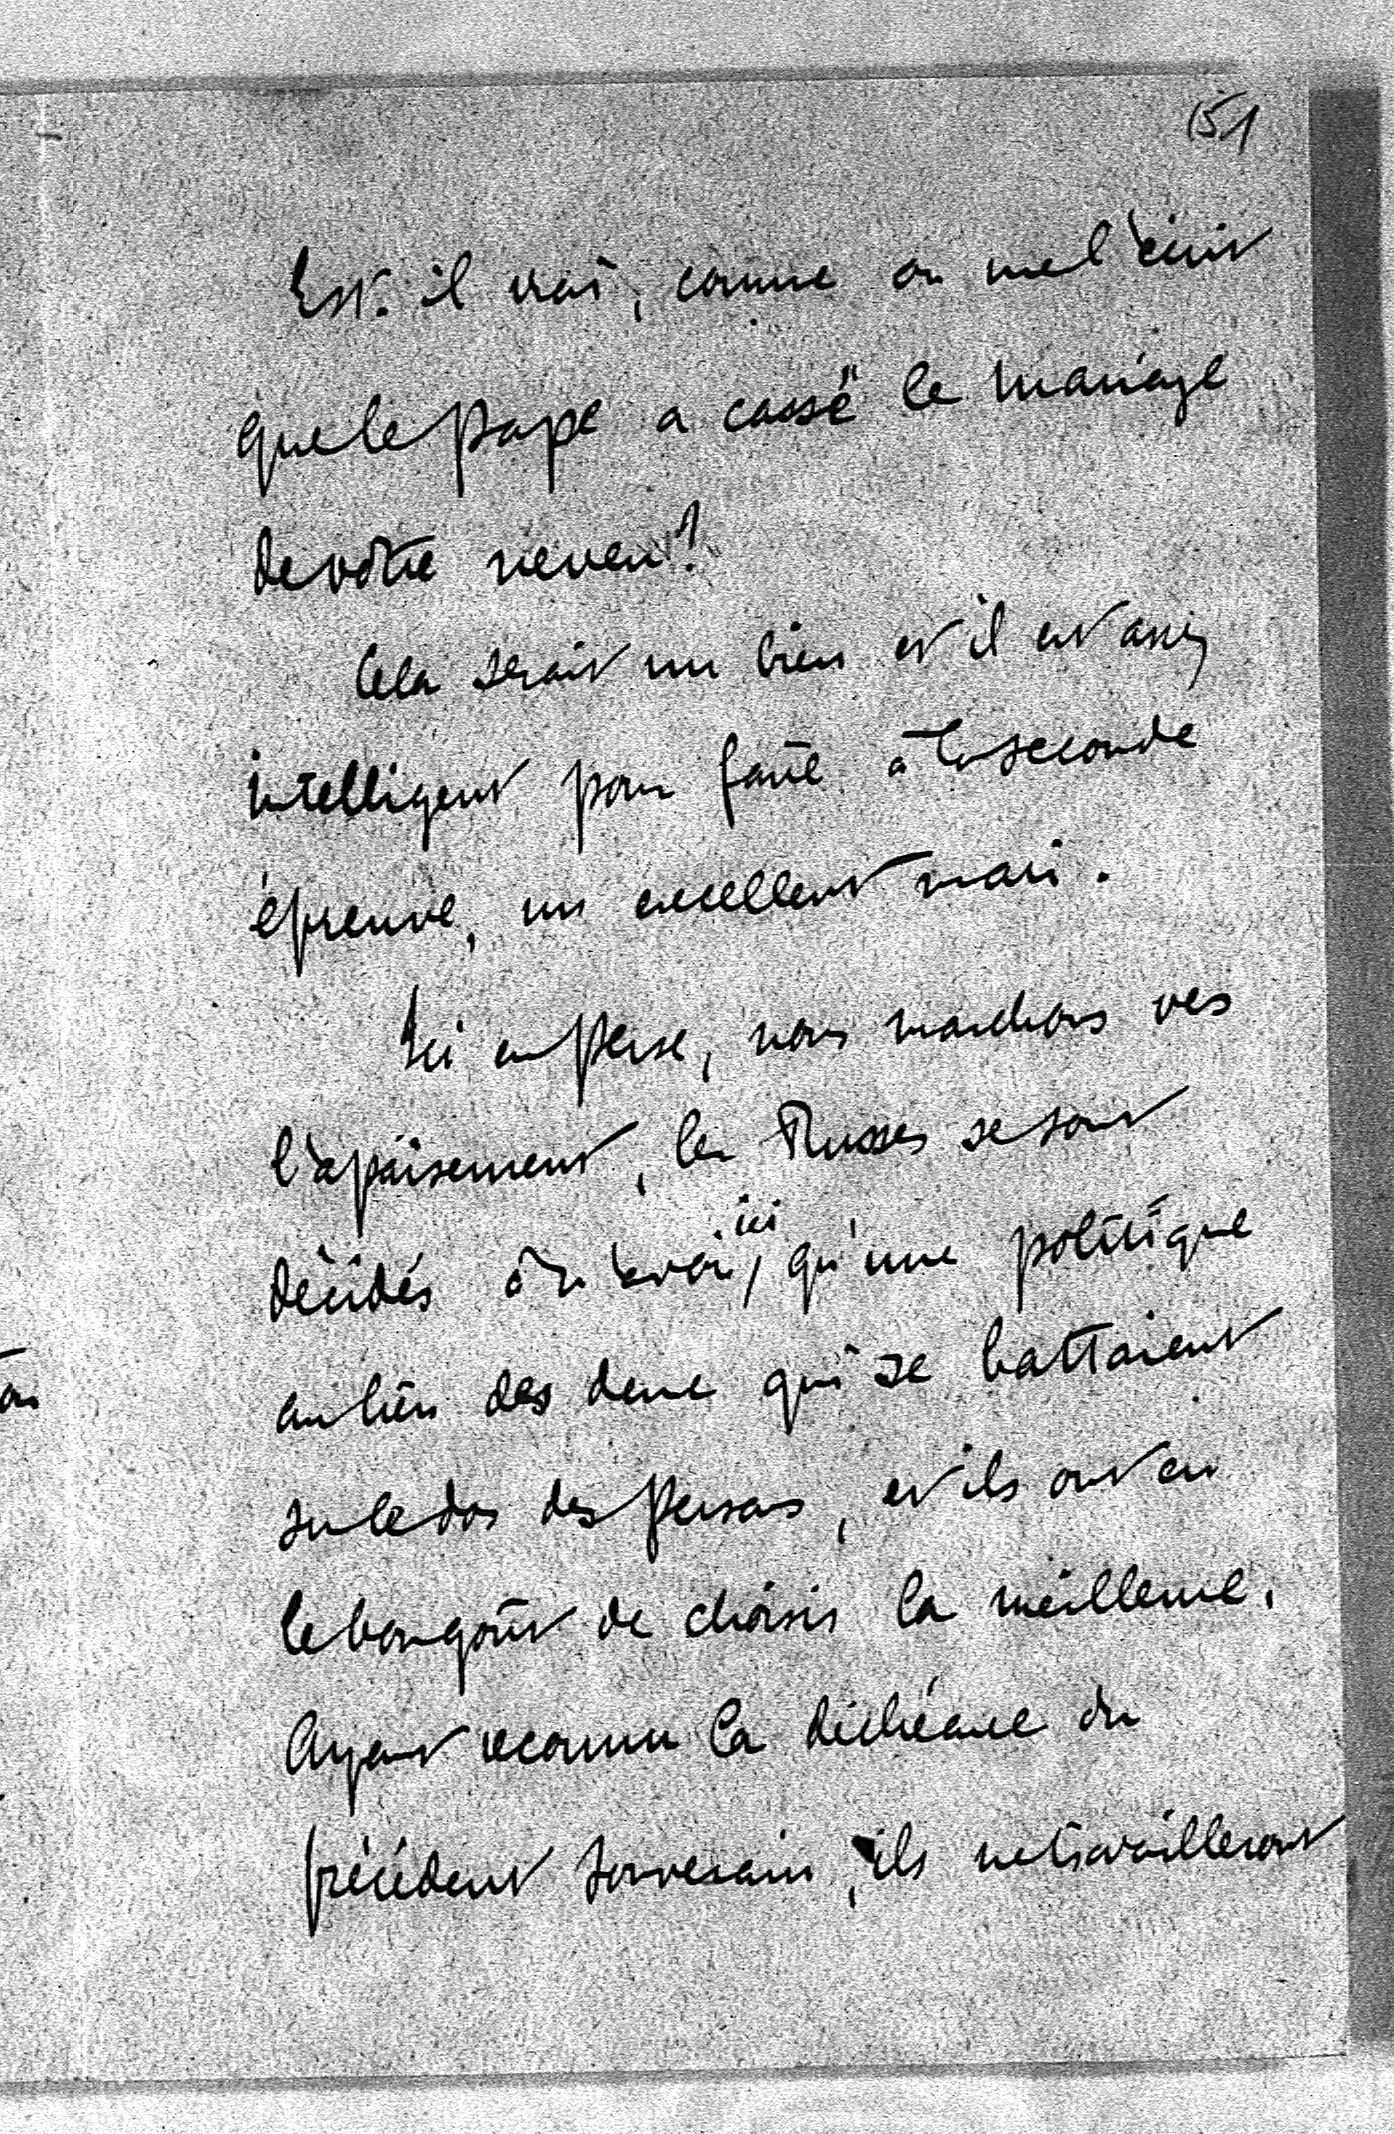 151
Est-il vrai, comme on me l'écrit
que le pape a cassé le mariage
de votre neveu?
Cela serait un bien et il est assez
intelligent pour faire à la seconde
épreuve, un excellent mari.
Ici en Perse, nous marchons vers
l'apaisement, les Russes se sont
ici
décidés à n'avoir, qu'une politique
au lieu des deux qui se battaient
sur le dos des Persans, et ils ont eu
le bon goût de choisir la meilleure.
Ayant reconnu la déchéance du
précédent souverain, ils ne travailleront